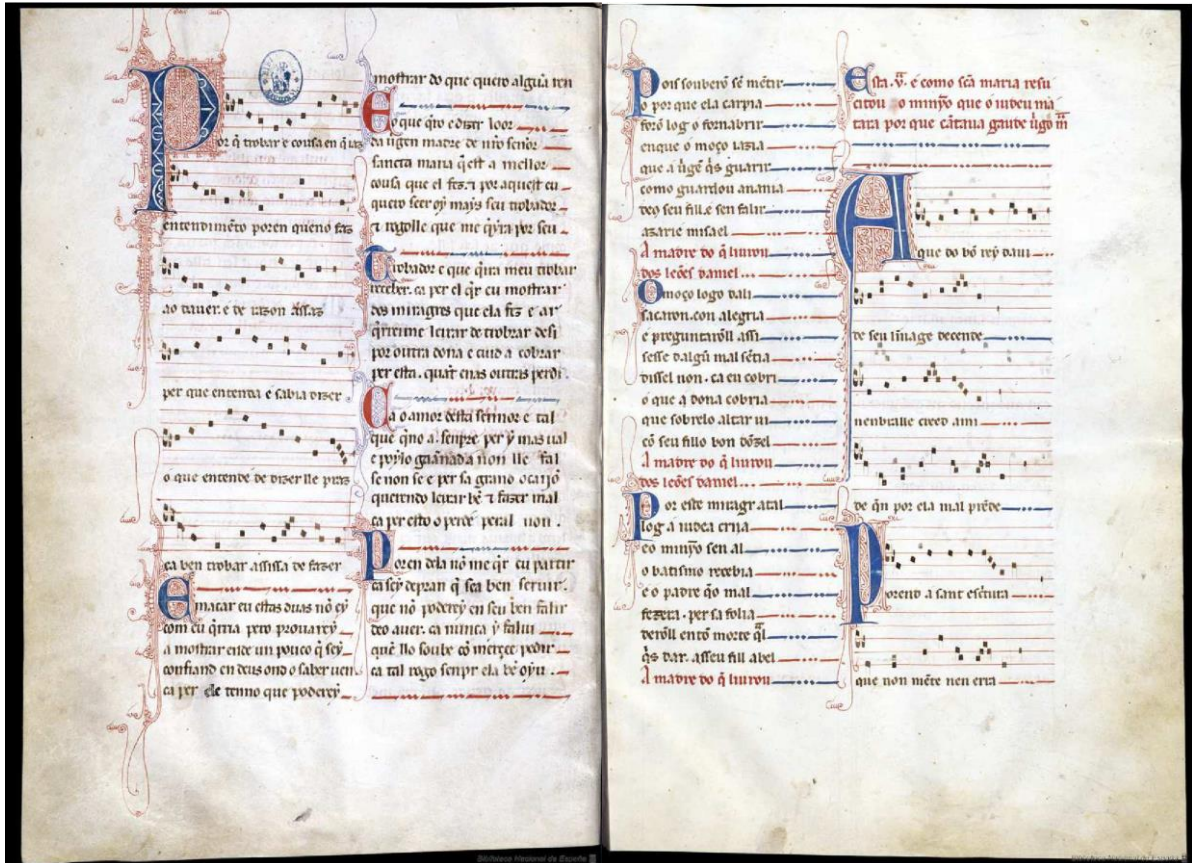 Por q̄ trobar e cousa en q̄ iaz
entendimēto poren queno faz
ao dauer. e de razon assaz
per que entenda e sabia dizer
o que entende de dizer lle praz
ca ben trobar assi s a de fazer
E macar eu estas duas nō ey
com eu q̄rria pero prouarey
a mostrar ende un pouco q̄ sey
confiand en deus ond o saber uen
ca per ele tenno que poderey
mostrar do que quero algūa ren
E o que q̄ro e dizer loor
da uirgen madre de nr̄o señor
sancta maria q̄ est a mellor
cousa que el fez. ⁊ por aquest eu
quero seer oy mays seu trobador
⁊ rogolle que me q̄yra por seu
Trobador e que q̄ira meu trobar
reçeber. ca per el q̄r eu mostrar
dos miragres que ela fez e ar
q̄rreime leixar de trobrar desi
por outra dona e cuid a cobrar
per esta. quāt enas outras perdi.
Ca o amor desta sennor e tal
que q̄no a. senpre per y mas ual
e poylo gāañad a non lle fal
se non se e per sa grand ocaiō
querendo leixar bē ⁊ fazer mal
ca per esto o perde per al non.
Poren dela nō me q̄r eu partir
ca sey de pran q̄ sea ben seruir.
que nō poderey en seu ben falir
deo auer. ca nunca y faliu
quē llo soube cō merçee pedir
ca tal rogo senpr ela bē oyu.
Pois souberō sē mētir
o por que ela carpia
forō log o forn abrir
en que o moço iazia
que a uirgē q̄s guarir
como guardou anania
deos seu fill. e sen falir
azarie misael
A madre do q̄ liurou
dos leōes daniel
O moço logo dali
sacaron. con alegria
e preguntarōll assi
sesse dalgū mal sētia
dissel non. ca eu cobri
o que a dona cobria
que sobrelo altar ui
cō seu fillo bon dōzel
A madre do q̄ liurou
dos leōes daniel
Por este miragr atal
log a iudea criia
e o minȳo sen al
o batismo recebia
e o padre q̄o mal
fezera. per sa folia
derōll entō morte q̄l
q̄s dar. a sseu fill abel
A madre do q̄ liurou
Esta .v. e como sc̄a maria resu
citou o minȳo que o iudeu ma
tara por que cātaua gaude uirgo m̄
A que do bō rey daui
de seu linage decende
nenbralle creed a mi
de q̄n por ela mal prēde
Porend a sant escritura
que non mēte nen erra
Biblioteca Nacional de España